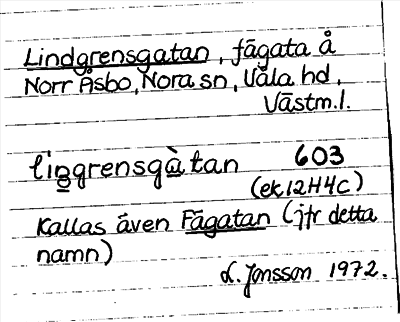 Lindgrensgatan, fägata å
Norr Åsbo, Nora sn, Våla hd,
Västm.l.
liŋgrensgàtan 603
(ek.12H4C)
Kallas även Fägatan (jfr detta
namn)
L. Jonsson 1972.